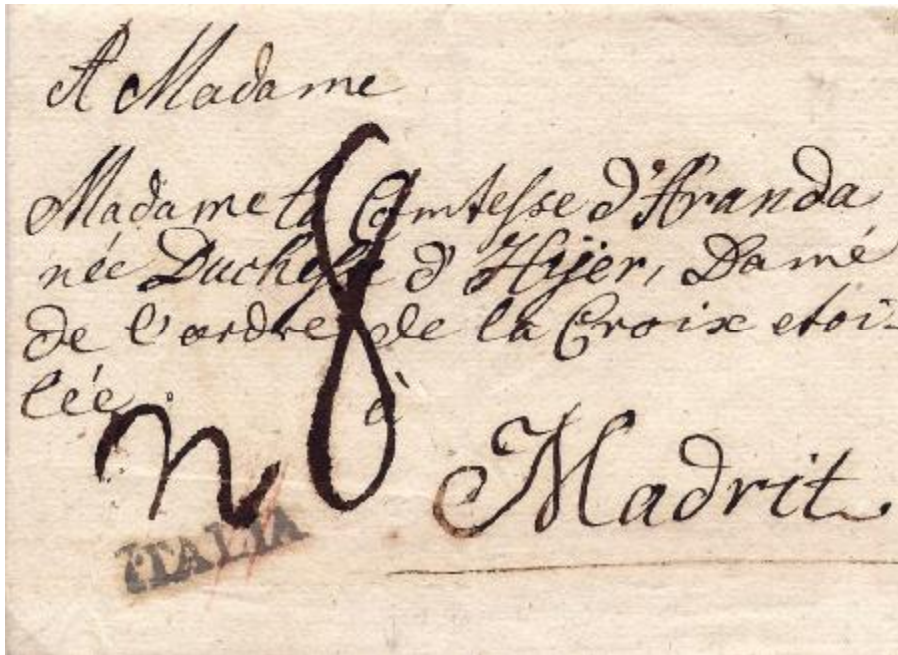 A Madame
Madame la Comtesse d'Aranda
née Duchesse d'Hijer, Damé
de l'ordre de la Croix etoi-
lée. à
n 8
Madrit
ITALIA